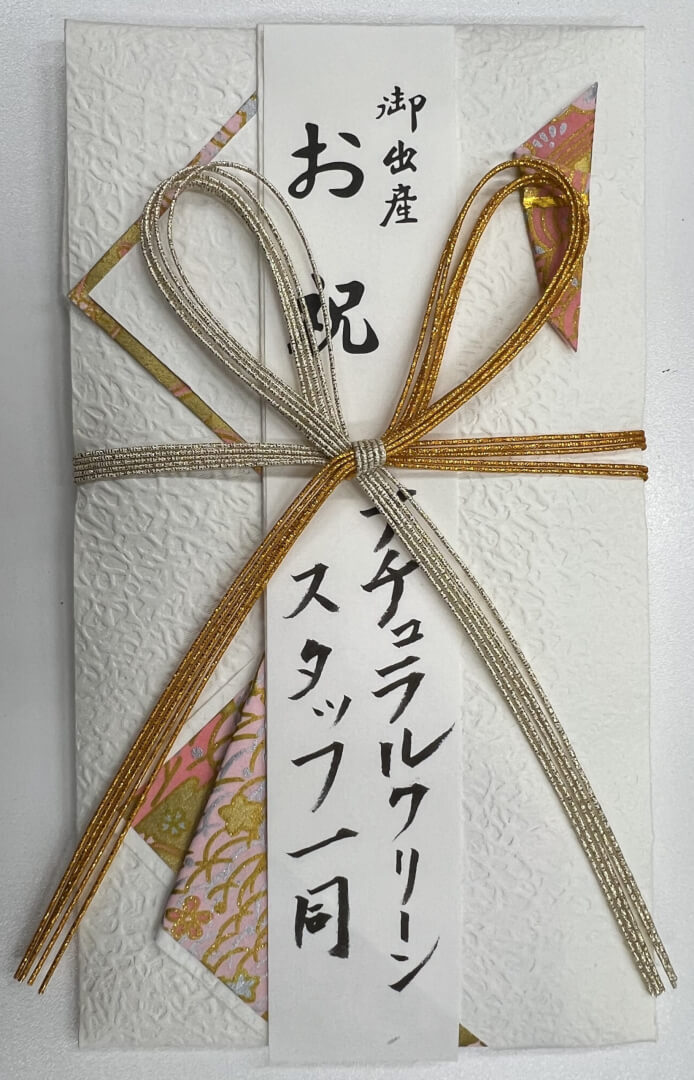 御出産
お祝
ナチュラルクリーン
スタッフ一同